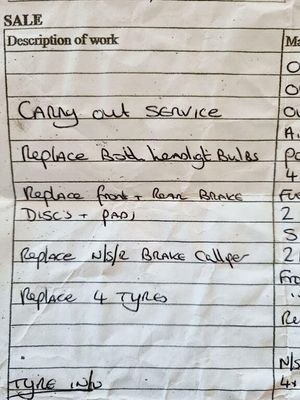 SALE
Description of work Ma
O
O
CARRY OUT SERVICE OU
A.
Replace Both headligt Bulbs Po
4
Replace front + Rear BRAKE Fue
DISC'S + PADS 2
S
Replace N/S/R BRAKE Calliper 2
Fro
Replace 4 TYRES
Re
N/S
TYRE INV 4x